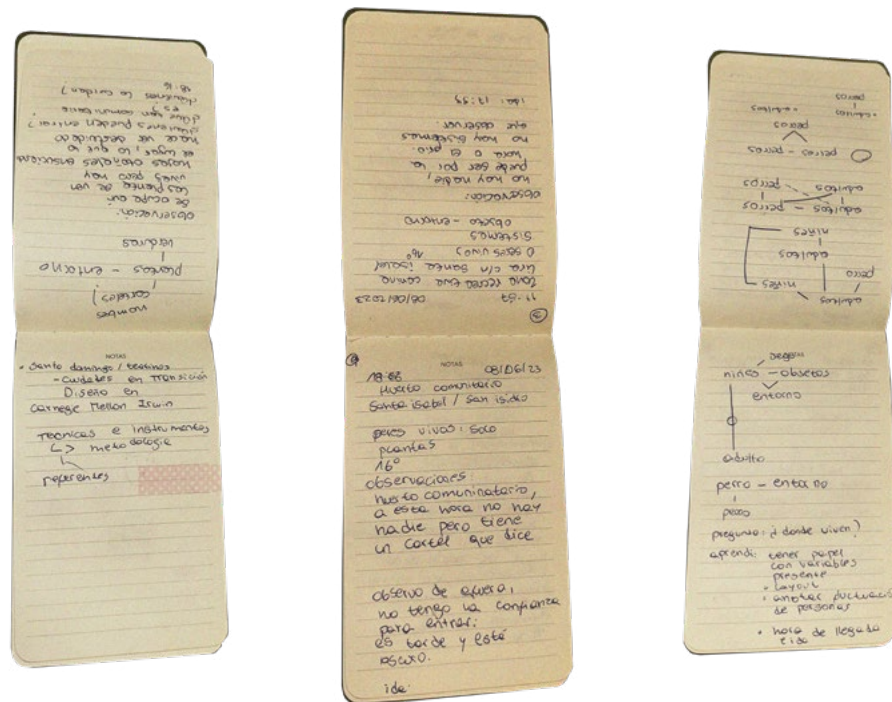 nombres
carteles?
plantas - entorno
verduras
observación:
se ocupa
las plantas se ven
vivas pero hay
hojas otoñales
el lugar, lo que lo
hace ver descuidado
¿quienes pueden entrar?
¿que tan comunitario
es?
¿quienes lo cuidan?
18:16
NOTAS
• Santo domingo / teatinos
- Ciudades en Transición
Diseño en
Carnegie Mellon Irwin
Tecnicas e instrumentos
↳ metodologia
referentes
3
17:57 08/06/2023
zona recreativa canina
Lira c/n Santa isabel
0 seres vivos 16°
Sistemas
objeto - entorno
observación:
no hay nadie,
puede ser por la
hora o el frio.
no hay sistemas
que observar
ida: 17:59
NOTAS
08/06/23
Huerto comunitario
Santa isabel / San isidro
seres vivos: solo
plantas
16°
observaciones:
huerto comuninatario,
a esta hora no hay
nadie pero tiene
un cartel que dice
observo de afuera,
no tengo la confianza
para entrar.
es tarde y está
oscuro.
ida:
adultos
perro
niñes
adultos
niñes
adultos - perros
adultos perros
perros - perros
perros
• adultos
• adultos
perros
NOTAS
niños - objetos
entorno
adulto
perro - entorno
perro
pregunta: ¿donde viven?
aprendi: tener papel
con variables
presente
• layout
• anotar fluctuación
de personas
• hora de llegada
e ida